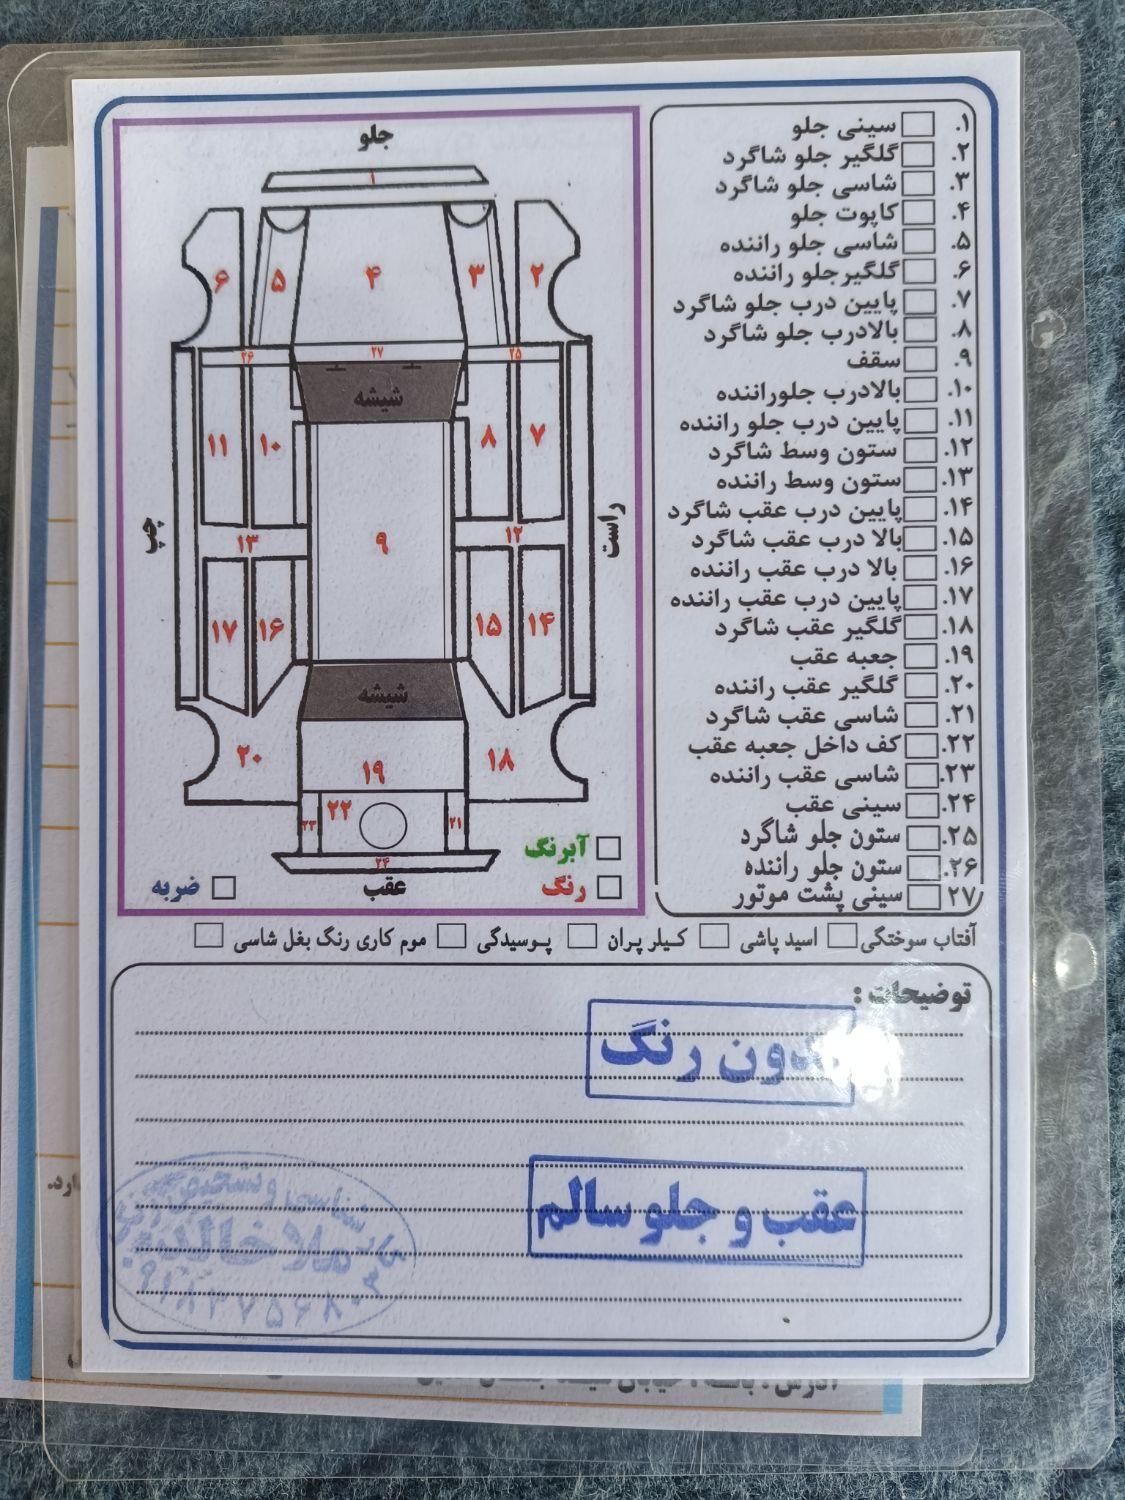 جلو
۱
۶
۵
۴
۳
۲
۲۶
۲۷
۲۵
شیشه
۱۱
۱۰
۸
۷
چپ
راست
۱۳
۹
۱۲
۱۷
۱۶
۱۵
۱۴
شیشه
۲۰
۱۹
۱۸
۲۳
۲۲
۲۱
۲۴
عقب
آبرنگ
رنگ
ضربه
۱. سینی جلو
۲. گلگیر جلو شاگرد
۳. شاسی جلو شاگرد
۴. کاپوت جلو
۵. شاسی جلو راننده
۶. گلگیرجلو راننده
۷. پایین درب جلو شاگرد
۸. بالادرب جلو شاگرد
۹. سقف
۱۰. بالادرب جلوراننده
۱۱. پایین درب جلو راننده
۱۲. ستون وسط شاگرد
۱۳. ستون وسط راننده
۱۴. پایین درب عقب شاگرد
۱۵. بالا درب عقب شاگرد
۱۶. بالا درب عقب راننده
۱۷. پایین درب عقب راننده
۱۸. گلگیر عقب شاگرد
۱۹. جعبه عقب
۲۰. گلگیر عقب راننده
۲۱. شاسی عقب شاگرد
۲۲. کف داخل جعبه عقب
۲۳. شاسی عقب راننده
۲۴. سینی عقب
۲۵. ستون جلو شاگرد
۲۶. ستون جلو راننده
۲۷ سینی پشت موتور
آفتاب سوختگی اسید پاشی کیلر پران پوسیدگی موم کاری رنگ بغل شاسی
توضیحات :
بدون رنگ
عقب و جلو سالم
ملا خالد